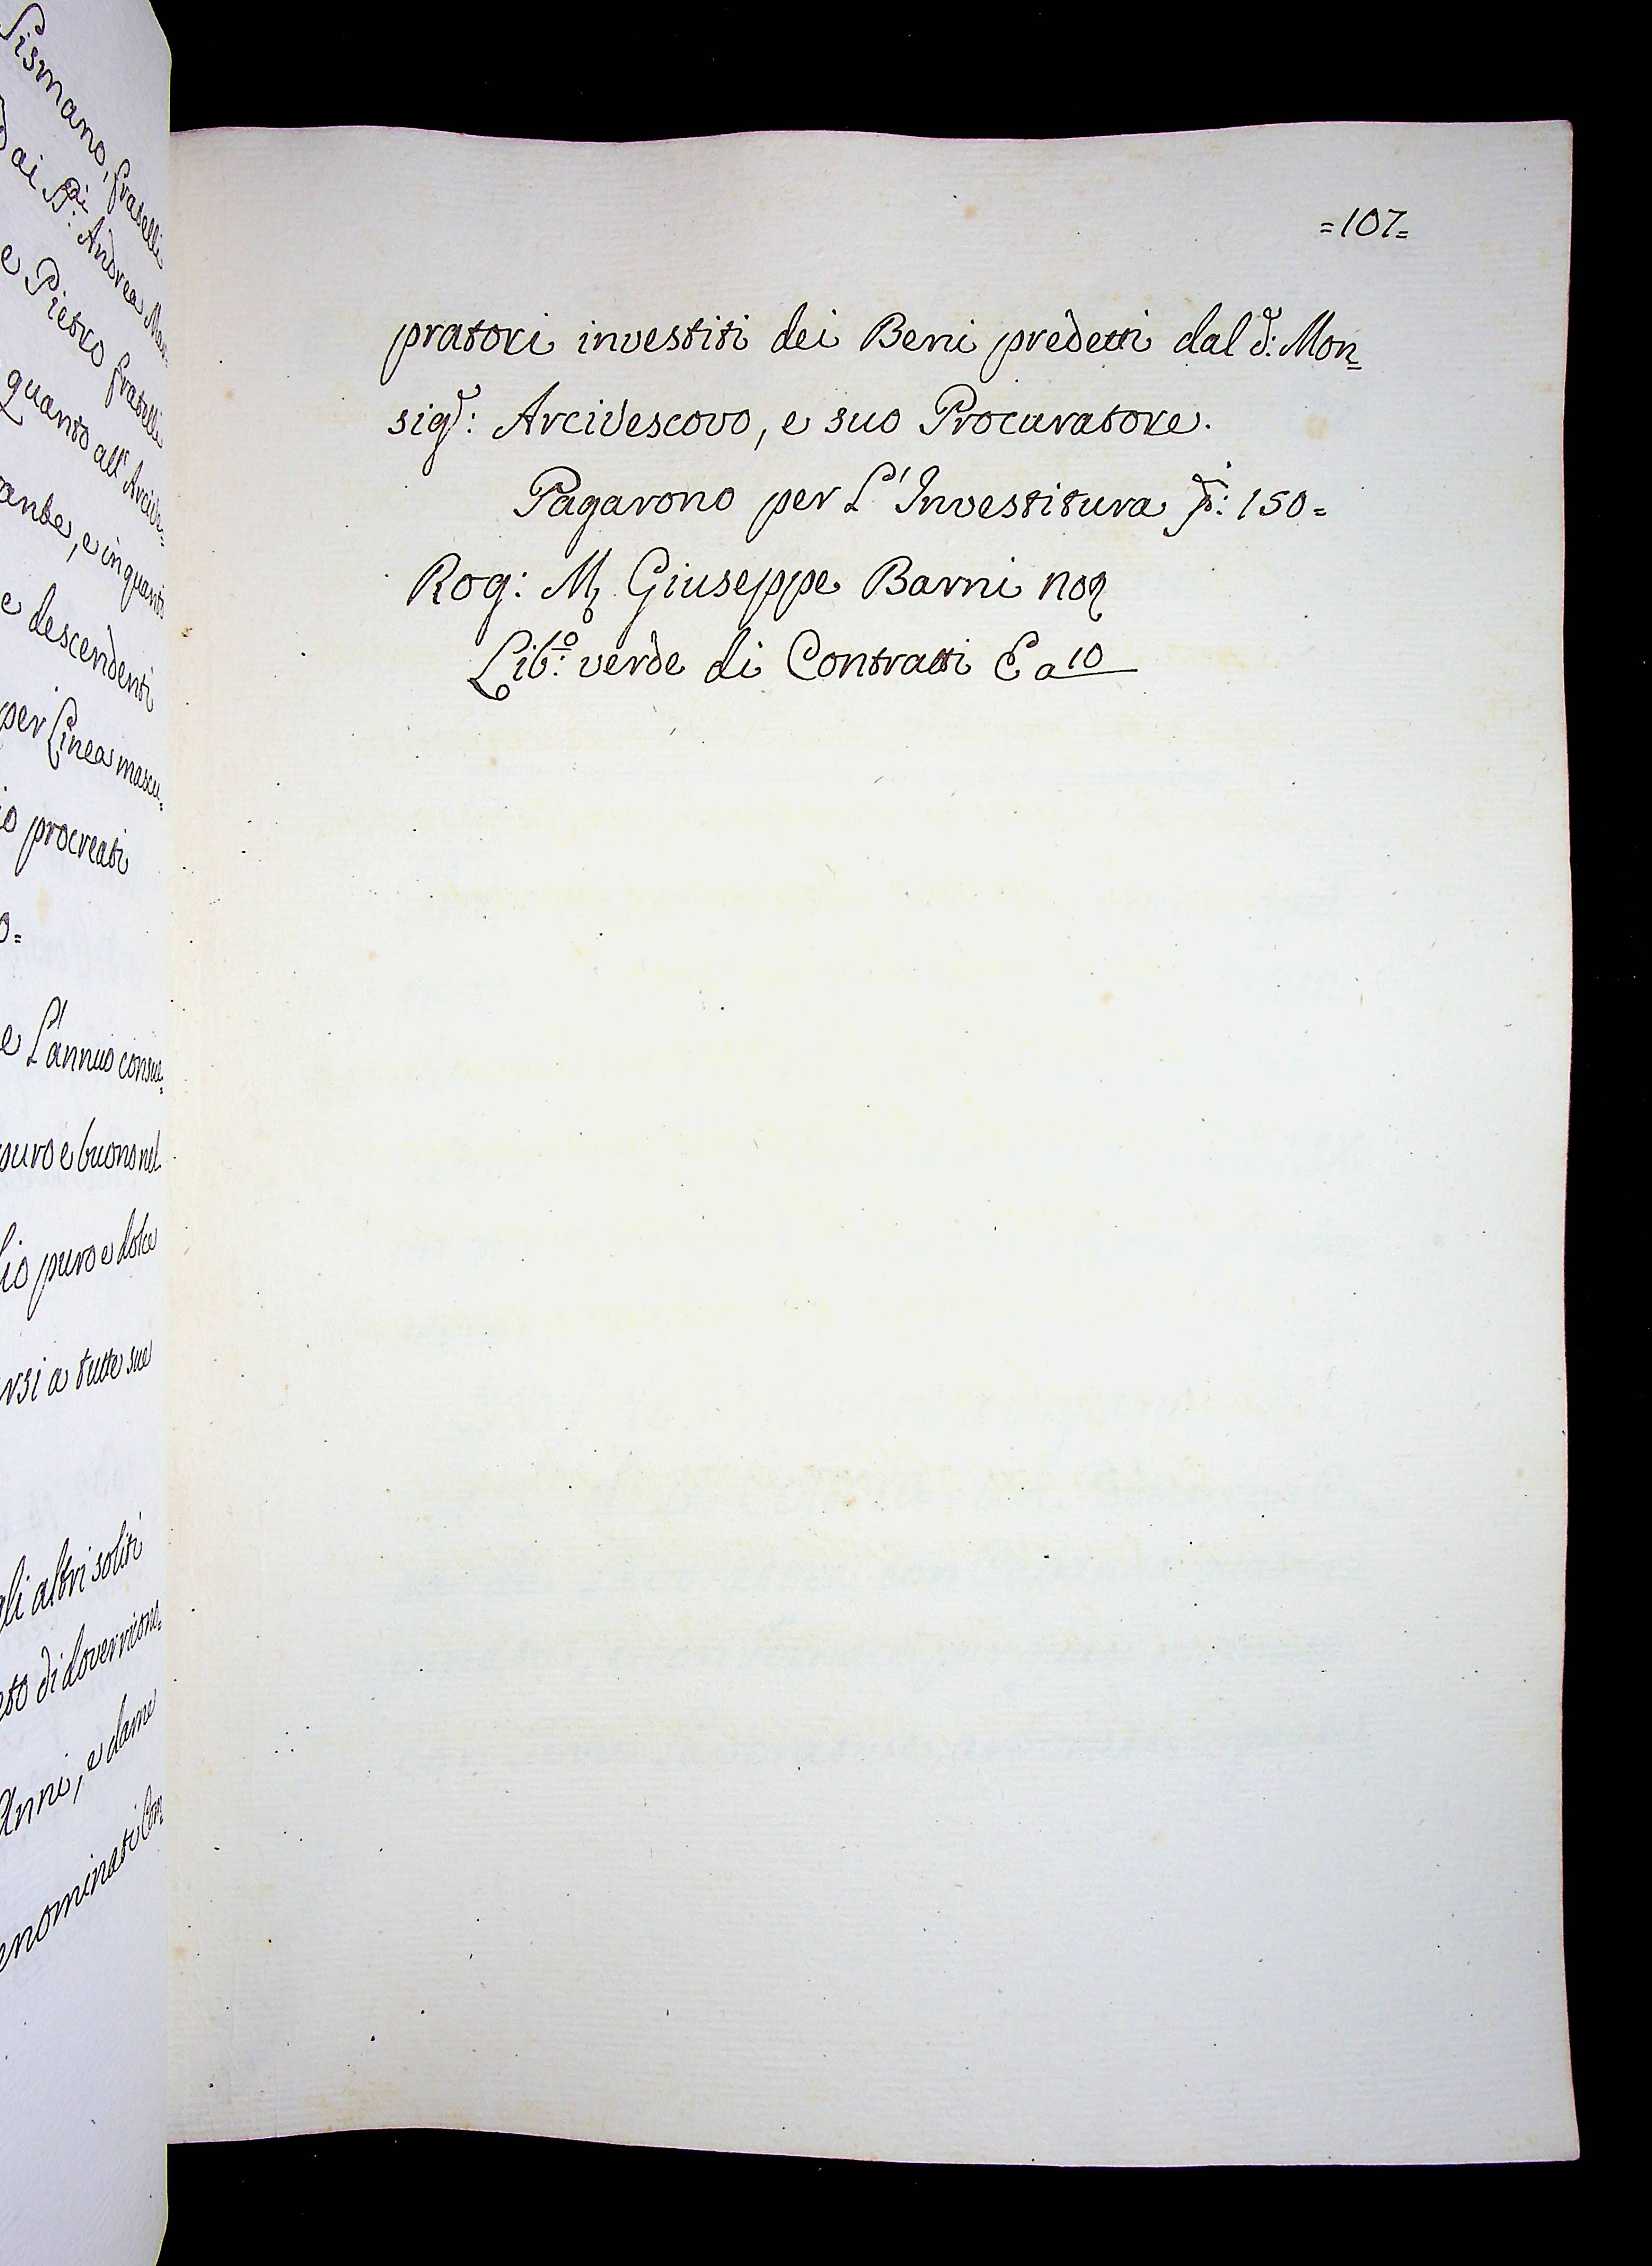 Sismano, fratelli
Dai SS.ri Andrea Man-
e Pietro fratelli
quanto all' Arcive=
ante, e in quanto
e descendenti
per Linea mascu-
io procreati
o=
e L'annuo consue=
puro e buono nel
lio puro e dolce
rsi a tutte sue
gli altri soliti
sto di dover ricono=
Anni, e dame
enominati Com
=107=
pratori investiti dei Beni predetti dal d: Mon=
sig.r: Arcivescovo, e suo Procuratore.
Pagarono per L'Investitura 150=
Rog: M. Giuseppe Barni no
Lib.o: verde di Contratti E a 10